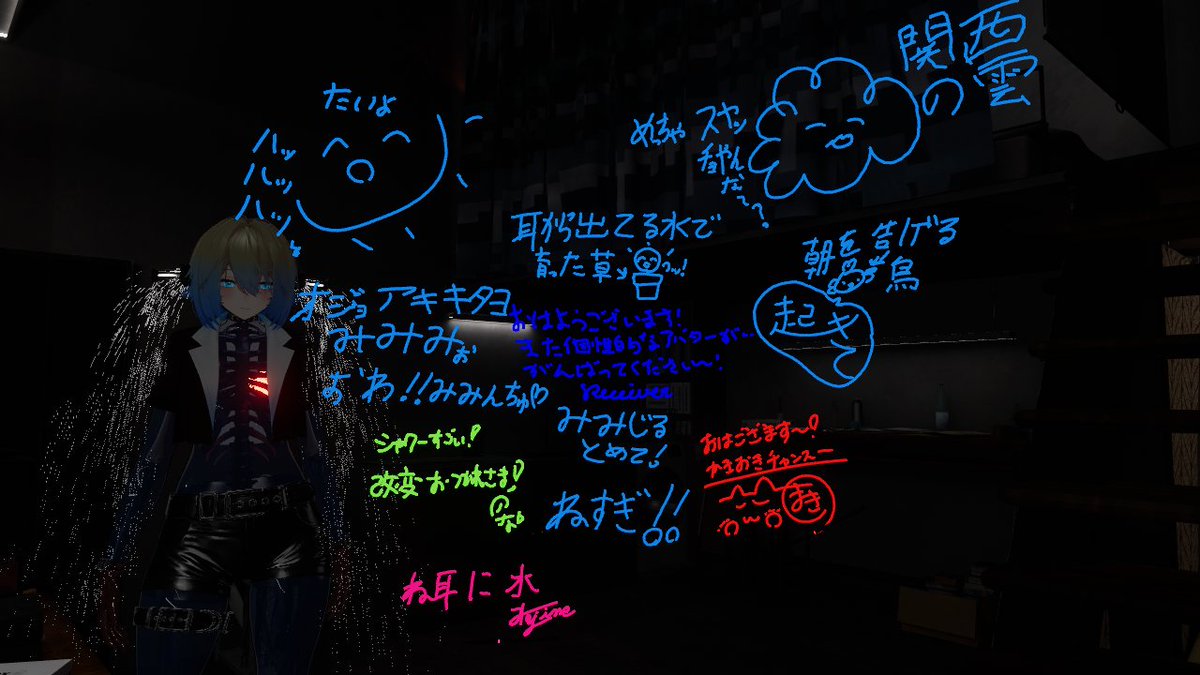 関西
の雲
たいよ
ハッ
ハッ
ハッ
めっちゃ スヤッ
耳から出てる水で
育った草ッ
朝を告げる
鳥
起きて
オジョアキキタヨ
みみみぉ
おわ!!みみんちゅ
おはようございます!
また個性的なアバターが…
がんばってください〜!
Receiver
みみじる
とめて!
シャワーすごい!
改変おつかれさま!
おはござます〜!
かきおきチャンスー
おき
ねすぎ!!
ね耳に水